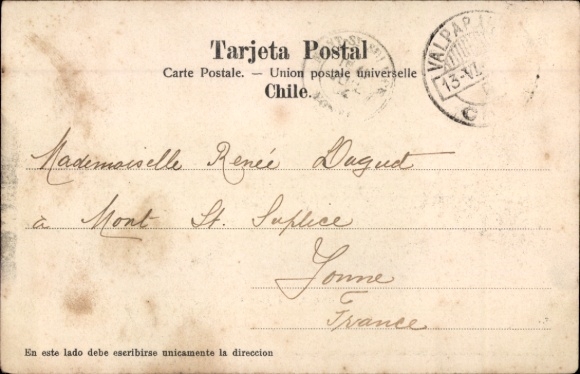 Tarjeta Postal
Carte Postale. — Union postale universelle
Chile.
VALPAR
13·VI
Mademoiselle Renée Dugut
à Mont St. Suplice
Yonne
France
En este lado debe escribirse unicamente la direccion